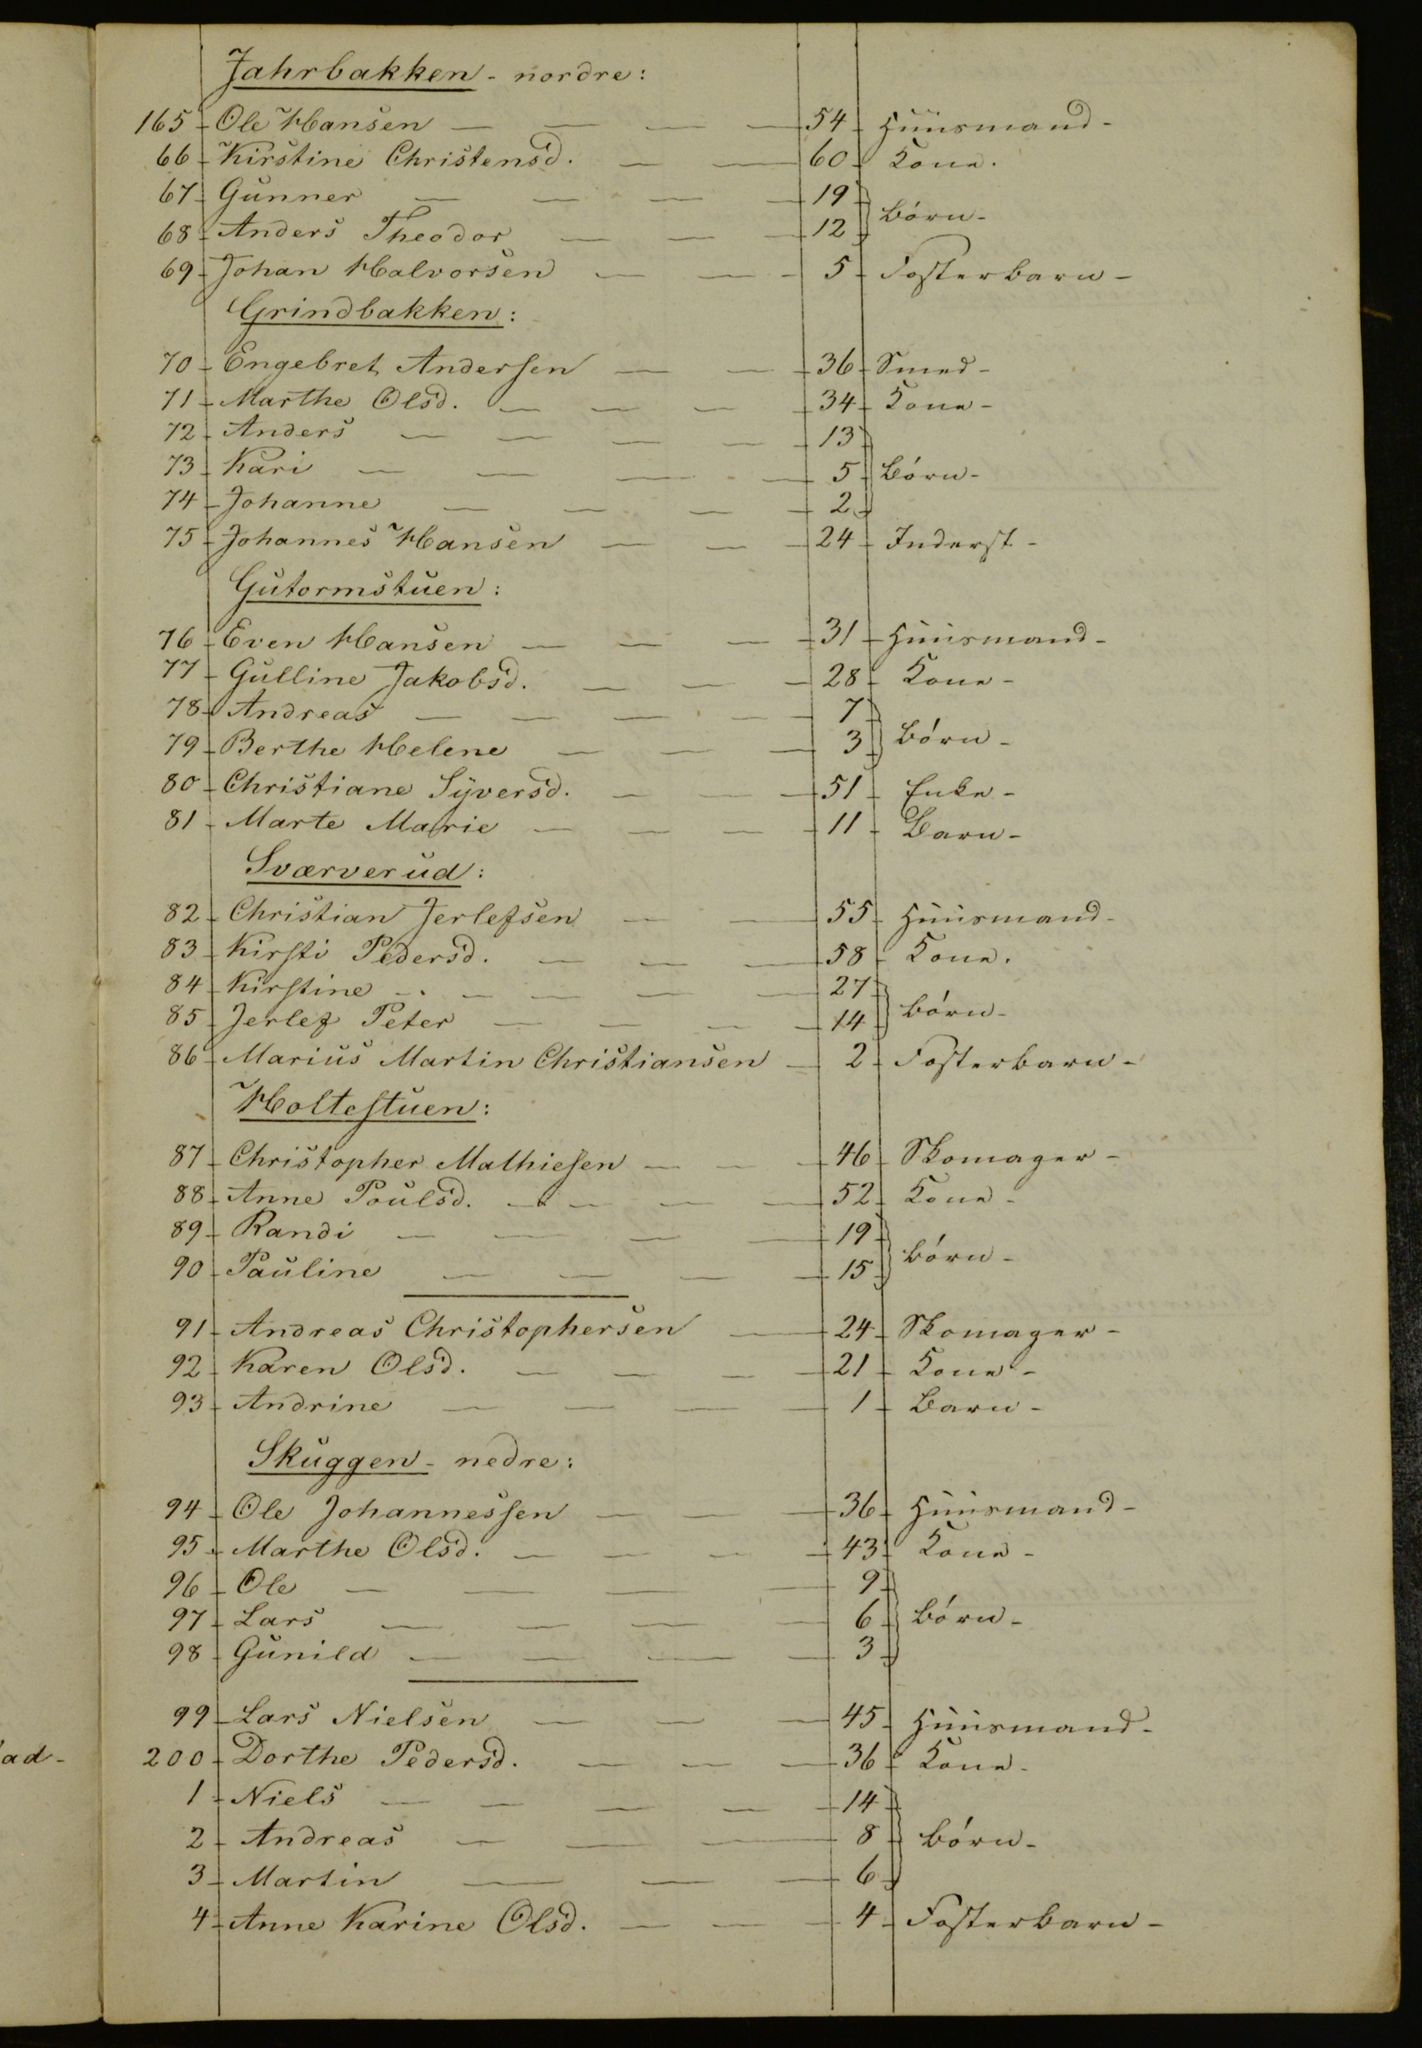 Jahrbakken - nordre:
165 Ole Hansen — — — — 54 Huusmand -
66 Kirstine Christensd. — — 60 Kone.
67 Gunner — — — — 19
Børn -
68 Anders Theodor — — — 12
69 Johan Halvorsen — — - 5 Fosterbarn -
Grindbakken:
70 Engebret Andersen — — 36 Smed -
71 Marthe Olsd. — — — 34 Kone -
72 Anders — — — — 13
73 Kari — — — — 5 Børn -
74 Johanne — — — — 2
75 Johannes Hansen — — - 24 Inderst -
Gutormstuen:
76 Even Hansen — — — 31 Huusmand -
77 Gulline Jakobsd. — — - 28 Kone -
78 Andreas — — — — 7
79 Berthe Helene — — — 3 Børn -
80 Christiane Syversd. — — — 51 Enke -
81 Marte Marie — — — 11 Barn -
Sværverud:
82 Christian Jerlefsen — — 55 Huusmand -
83 Kirsti Pedersd. — — — 58 Kone.
84 Kirstine - . — — — — 27
Børn -
85 Jerlef Peter — — — - 14
86 Marius Martin Christiansen — 2 Fosterbarn -
Holtestuen:
87 Christopher Mathiesen — — — 46 Skomager -
88 Anne Poulsd. — — — — 52 Kone -
89 Randi — — — — 19
Børn -
90 Pauline — — — — 15
91 Andreas Christophersen — 24 Skomager -
92 Karen Olsd. — — — — 21 Kone -
93 Andrine — — — — 1 Barn -
Skuggen - nedre:
94 Ole Johannessen — — — 36 Huusmand -
95 Marthe Olsd. — — — - 43 Kone -
96 Ole — — — — 9
97 Lars — — — — 6 Børn -
98 Gunild — — — — 3
99 Lars Nielsen — — — 45 Huusmand -
ad -
200 Dorthe Pedersd. — — — 36 Kone -
1 Niels — — — — 14
2 Andreas — — — 8 Børn -
3 Martin — — — 6
4 Anne Karine Olsd. — — - 4 Fosterbarn -